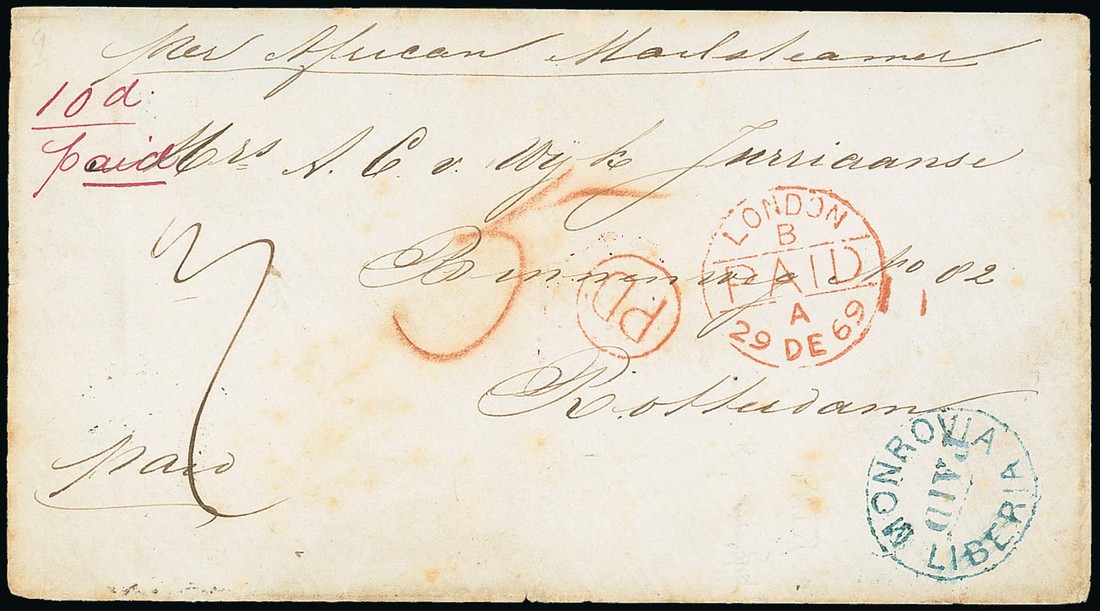 per African Mailsteamer
10d.
paid
Mrs A. C. v. Wijk Jurriaanse
5
Binnenweg No 82
Rotterdam
paid
7
PD
LONDON
B
PAID
A
29 DE 69
MONROVIA
PAID
LIBERIA